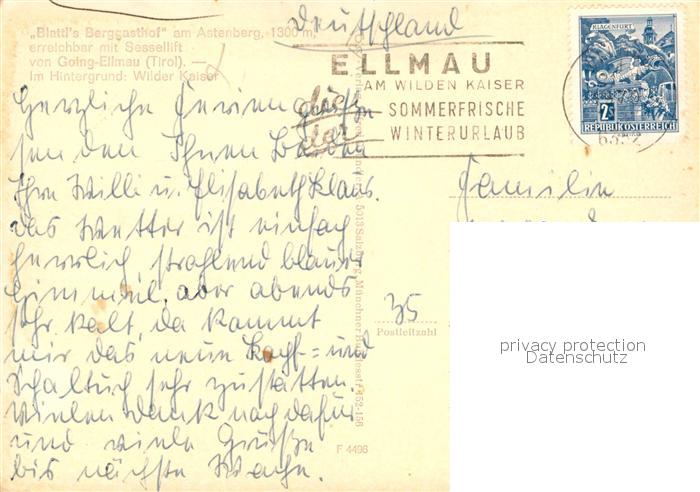 Deutschland
„Blattl's Berggasthof" am Astenberg, 1300 m,
erreichbar mit Sessellift
von Going-Ellmau (Tirol). —
Im Hintergrund: Wilder Kaiser
ELLMAU
AM WILDEN KAISER
SOMMERFRISCHE
WINTERURLAUB
KLAGENFURT
2S
REPUBLIK ÖSTERREICH
6352
Herzliche Feriengrüße
senden Ihnen beiden
Ihre Willi u. Elisabeth Klaus.
Das Wetter ist einfach
herrlich, strahlend blauer
Himmel, aber abends
sehr kalt, da kommt
mir das neue Kopf = und
Schaltuch sehr zustatten.
Vielen Dank noch dafür
und viele Grüße
bis nächste Woche.
Familie
35
Postleitzahl
5013 Salzburg, Münchner Bundesstr.
F 4496
privacy protection
Datenschutz